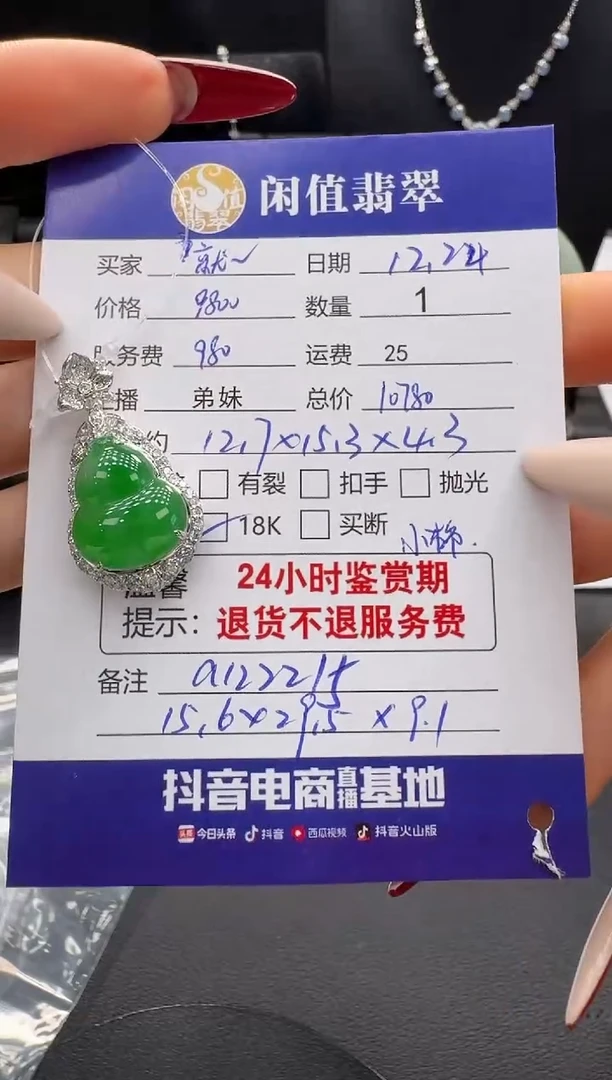 闲值翡翠
闲值翡翠
买家 日期 12.24
价格 9800 数量 1
服务费 980 运费 25
播 弟妹 总价 10780
约 12.7×15.3×4.3
有裂 扣手 抛光
18K 买断 小棉.
温馨 24小时鉴赏期
提示: 退货不退服务费
备注 a122215
15.6×29.5×9.1
抖音电商直播基地
头条 今日头条 抖音 西瓜视频 抖音火山版